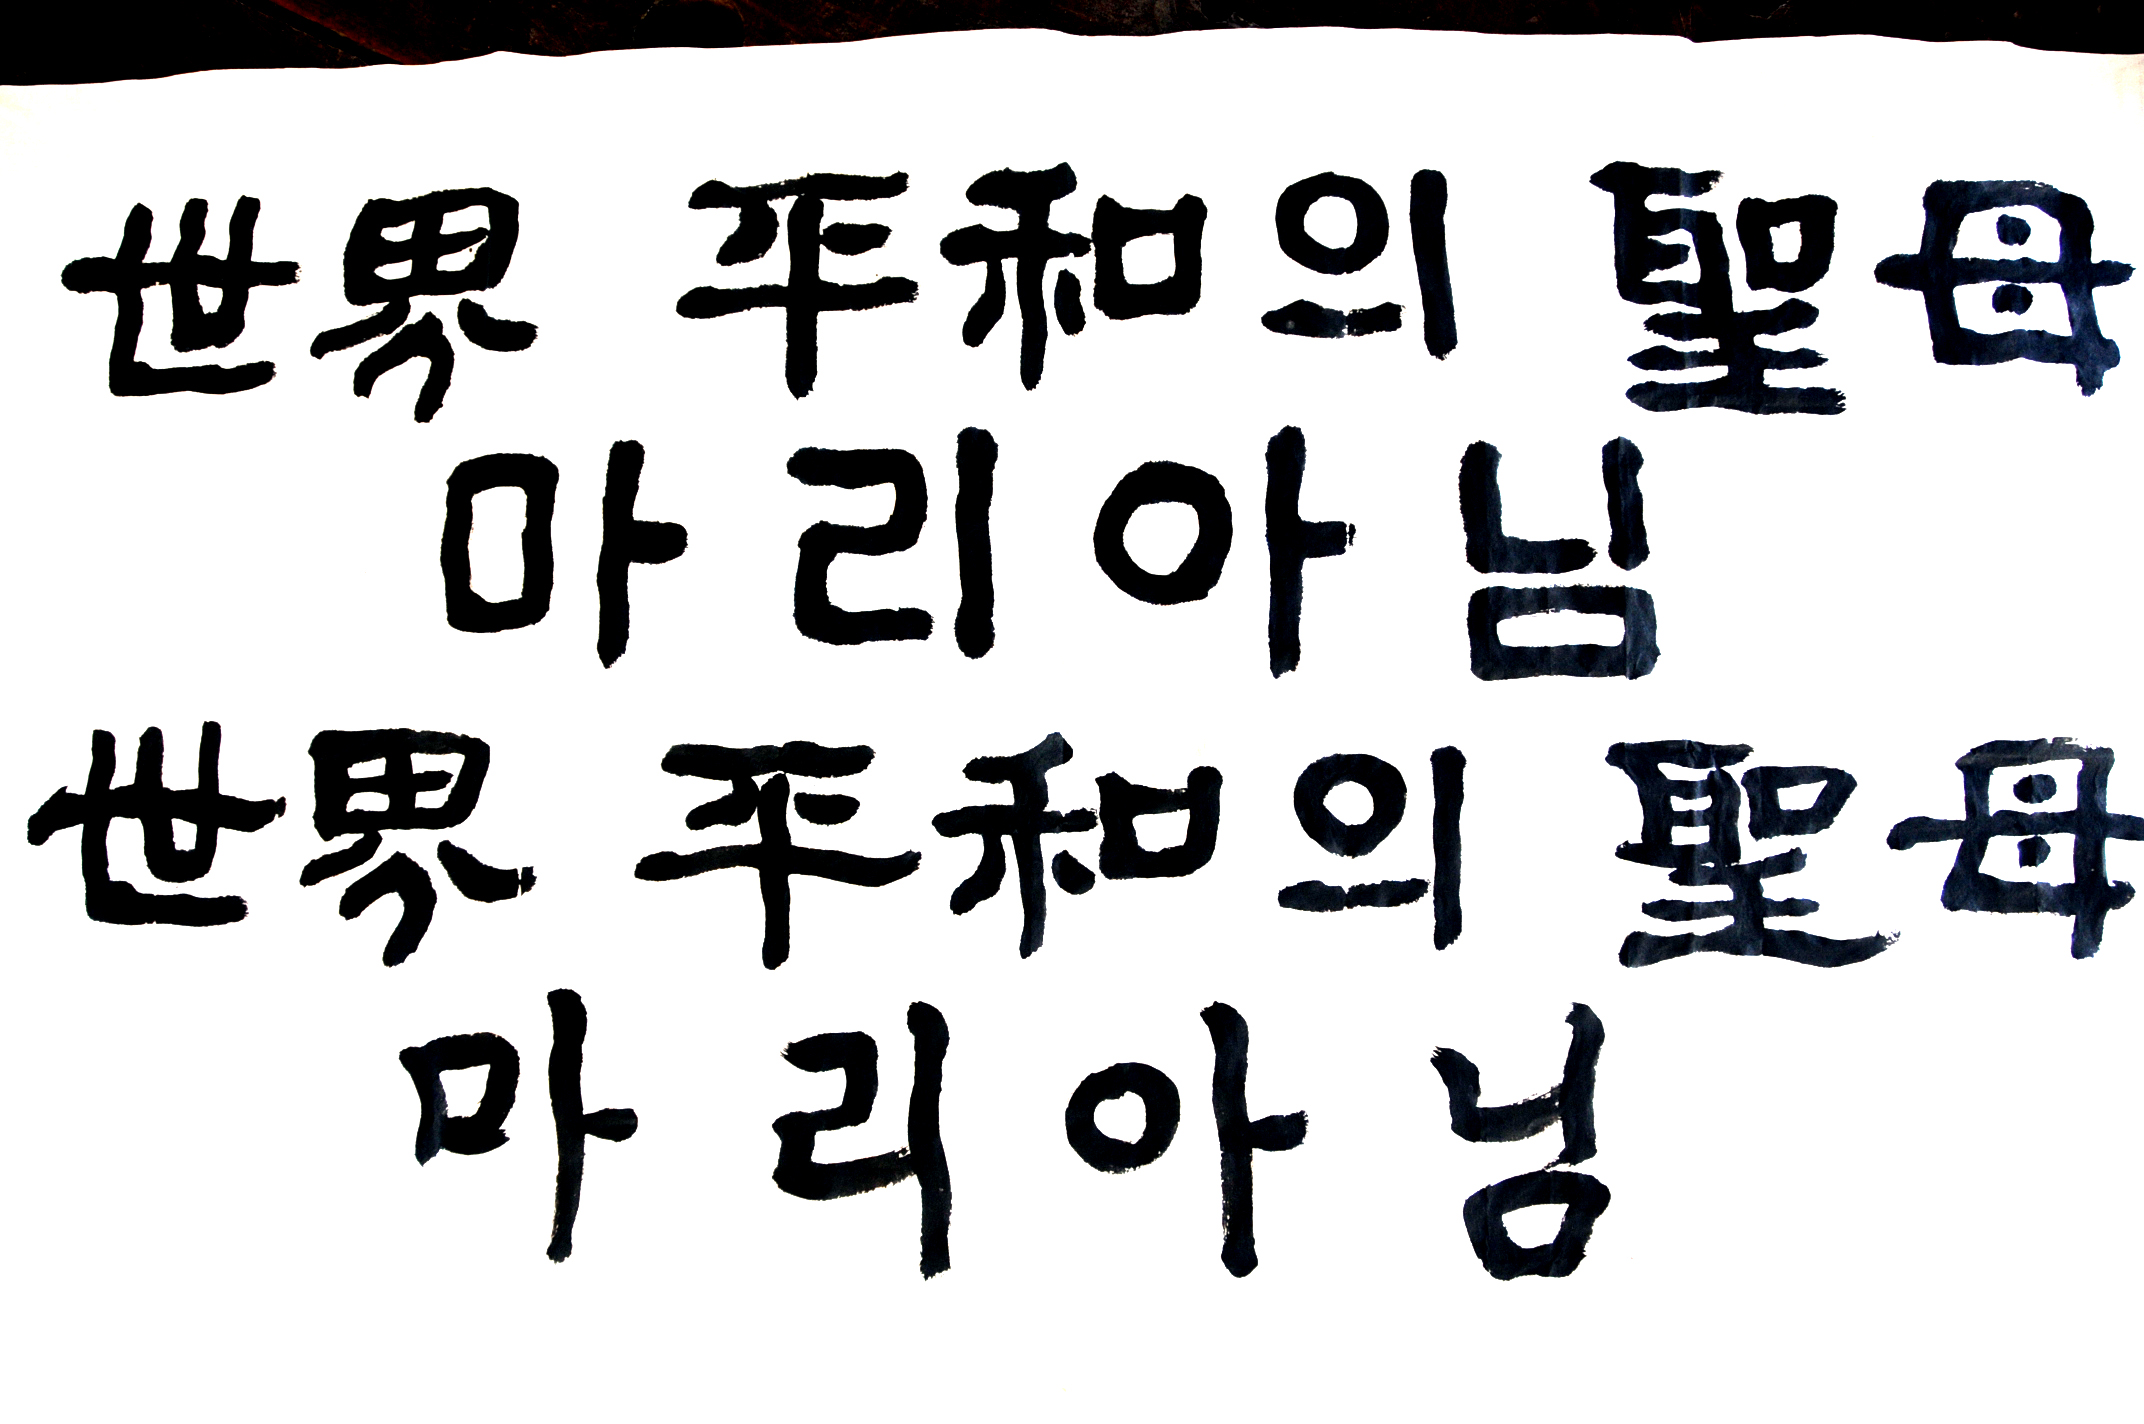 世界 平和의 聖母
마리아님
世界 平和의 聖母
마리아님